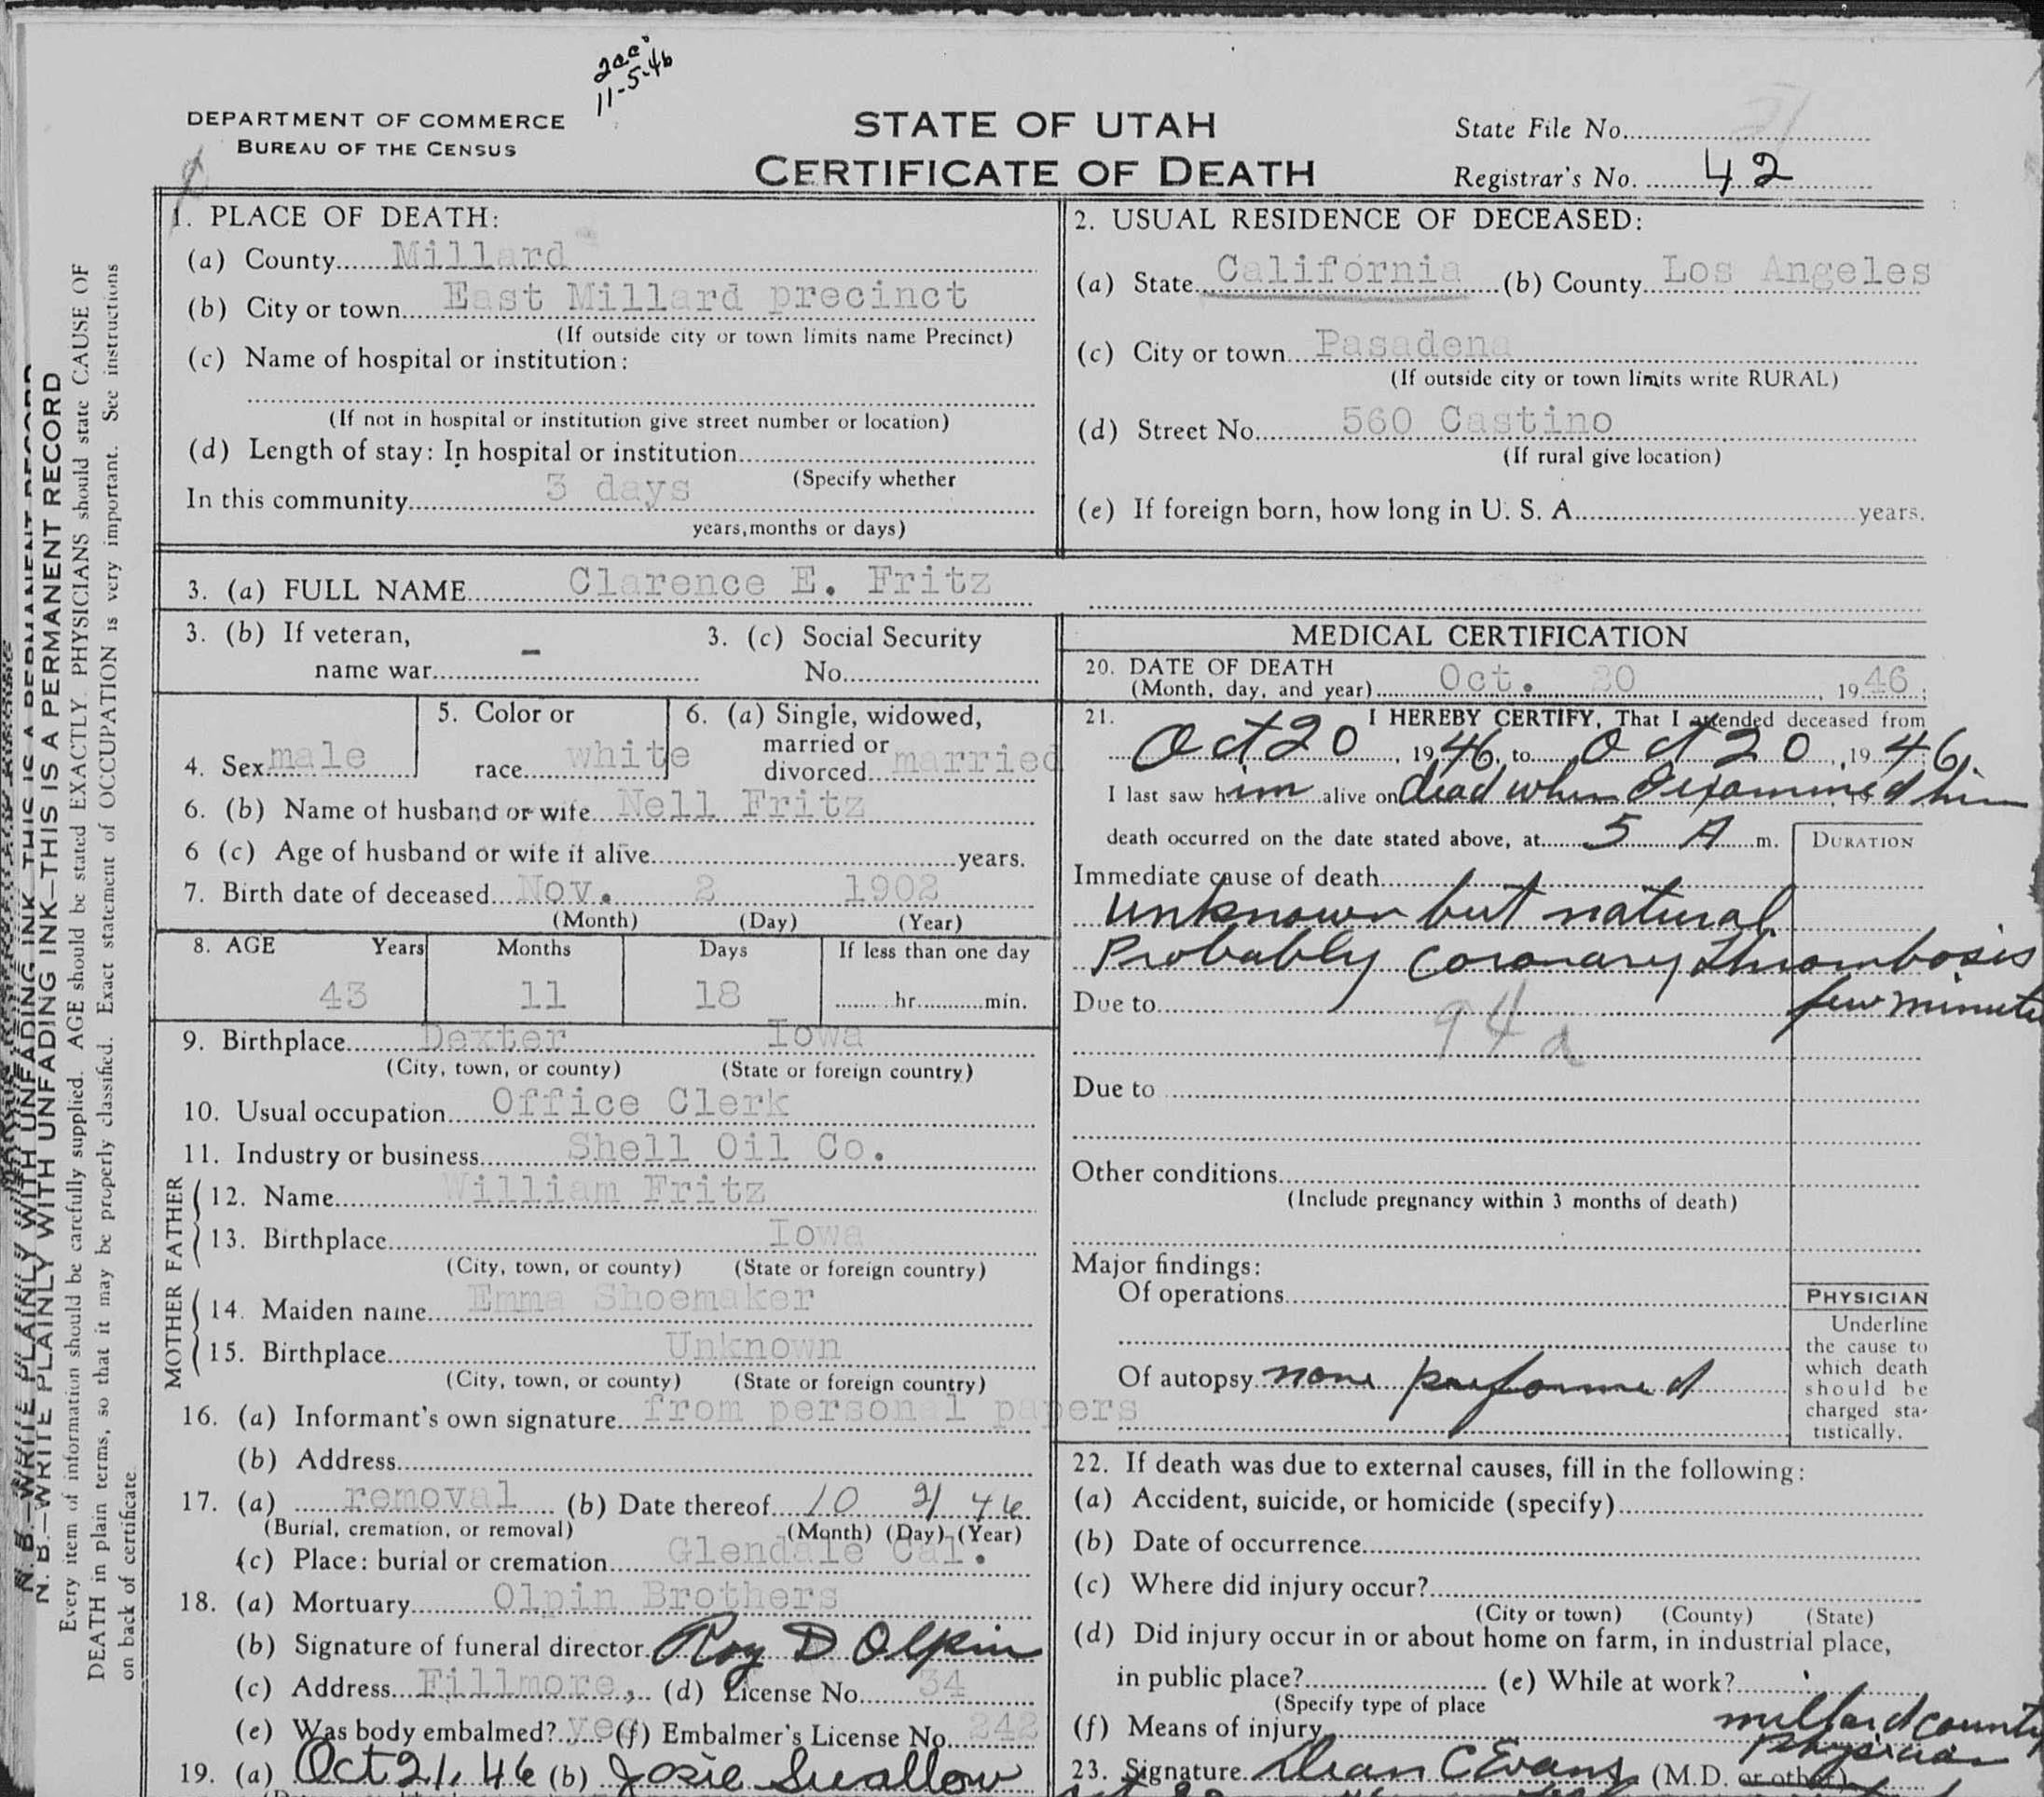 11-5-46
DEPARTMENT OF COMMERCE
BUREAU OF THE CENSUS
STATE OF UTAH
CERTIFICATE OF DEATH
State File No.
Registrar's No. 42
N. B.—WRITE PLAINLY WITH UNFADING INK—THIS IS A PERMANENT RECORD
N. B.—WRITE PLAINLY WITH UNFADING INK—THIS IS A PERMANENT RECORD
Every item of information should be carefully supplied. AGE should be stated EXACTLY. PHYSICIANS should state CAUSE OF
DEATH in plain terms, so that it may be properly classified. Exact statement of OCCUPATION is very important. See instructions
on back of certificate.
1. PLACE OF DEATH:
(a) County Millard
(b) City or town East Millard precinct
(If outside city or town limits name Precinct)
(c) Name of hospital or institution:
(If not in hospital or institution give street number or location)
(d) Length of stay: In hospital or institution
(Specify whether
In this community 3 days
years, months or days)
2. USUAL RESIDENCE OF DECEASED:
(a) State California (b) County Los Angeles
(c) City or town Pasadena
(If outside city or town limits write RURAL)
(d) Street No. 560 Castino
(If rural give location)
(e) If foreign born, how long in U. S. A. years.
3. (a) FULL NAME Clarence E. Fritz
3. (b) If veteran,
name war –
3. (c) Social Security
No.
4. Sex male
5. Color or
race white
6. (a) Single, widowed,
married or
divorced married
6. (b) Name of husband or wife Nell Fritz
6 (c) Age of husband or wife if alive years.
7. Birth date of deceased Nov. 2 1902
(Month) (Day) (Year)
8. AGE Years Months Days If less than one day
43 11 18 hr. min.
9. Birthplace Dexter Iowa
(City, town, or county) (State or foreign country)
10. Usual occupation Office Clerk
11. Industry or business Shell Oil Co.
FATHER
12. Name William Fritz
13. Birthplace Iowa
(City, town, or county) (State or foreign country)
MOTHER
14. Maiden name Emma Shoemaker
15. Birthplace Unknown
(City, town, or county) (State or foreign country)
16. (a) Informant's own signature from personal papers
(b) Address
17. (a) removal (b) Date thereof 10 21 46
(Burial, cremation, or removal) (Month) (Day) (Year)
(c) Place: burial or cremation Glendale Cal.
18. (a) Mortuary Olpin Brothers
(b) Signature of funeral director Roy D Olpin
(c) Address Fillmore, (d) License No. 34
(e) Was body embalmed? yes (f) Embalmer's License No. 242
19. (a) Oct 21, 46 (b) Josie Swallow
MEDICAL CERTIFICATION
20. DATE OF DEATH
(Month, day, and year) Oct. 20, 1946;
21. I HEREBY CERTIFY, That I attended deceased from
Oct 20, 1946, to Oct 20, 1946.
I last saw him alive on dead when I examined him
death occurred on the date stated above, at 5 A m.
DURATION
Immediate cause of death
unknown but natural
Probably Coronary Thrombosis
few minute
Due to
94a
Due to
Other conditions
(Include pregnancy within 3 months of death)
Major findings:
Of operations
Of autopsy none preformed
PHYSICIAN
Underline
the cause to
which death
should be
charged sta-
tistically.
22. If death was due to external causes, fill in the following:
(a) Accident, suicide, or homicide (specify)
(b) Date of occurrence
(c) Where did injury occur?
(City or town) (County) (State)
(d) Did injury occur in or about home on farm, in industrial place,
in public place? (e) While at work?
(Specify type of place
(f) Means of injury
Millard County
Physician
23. Signature Dean C Evans (M.D. or other)